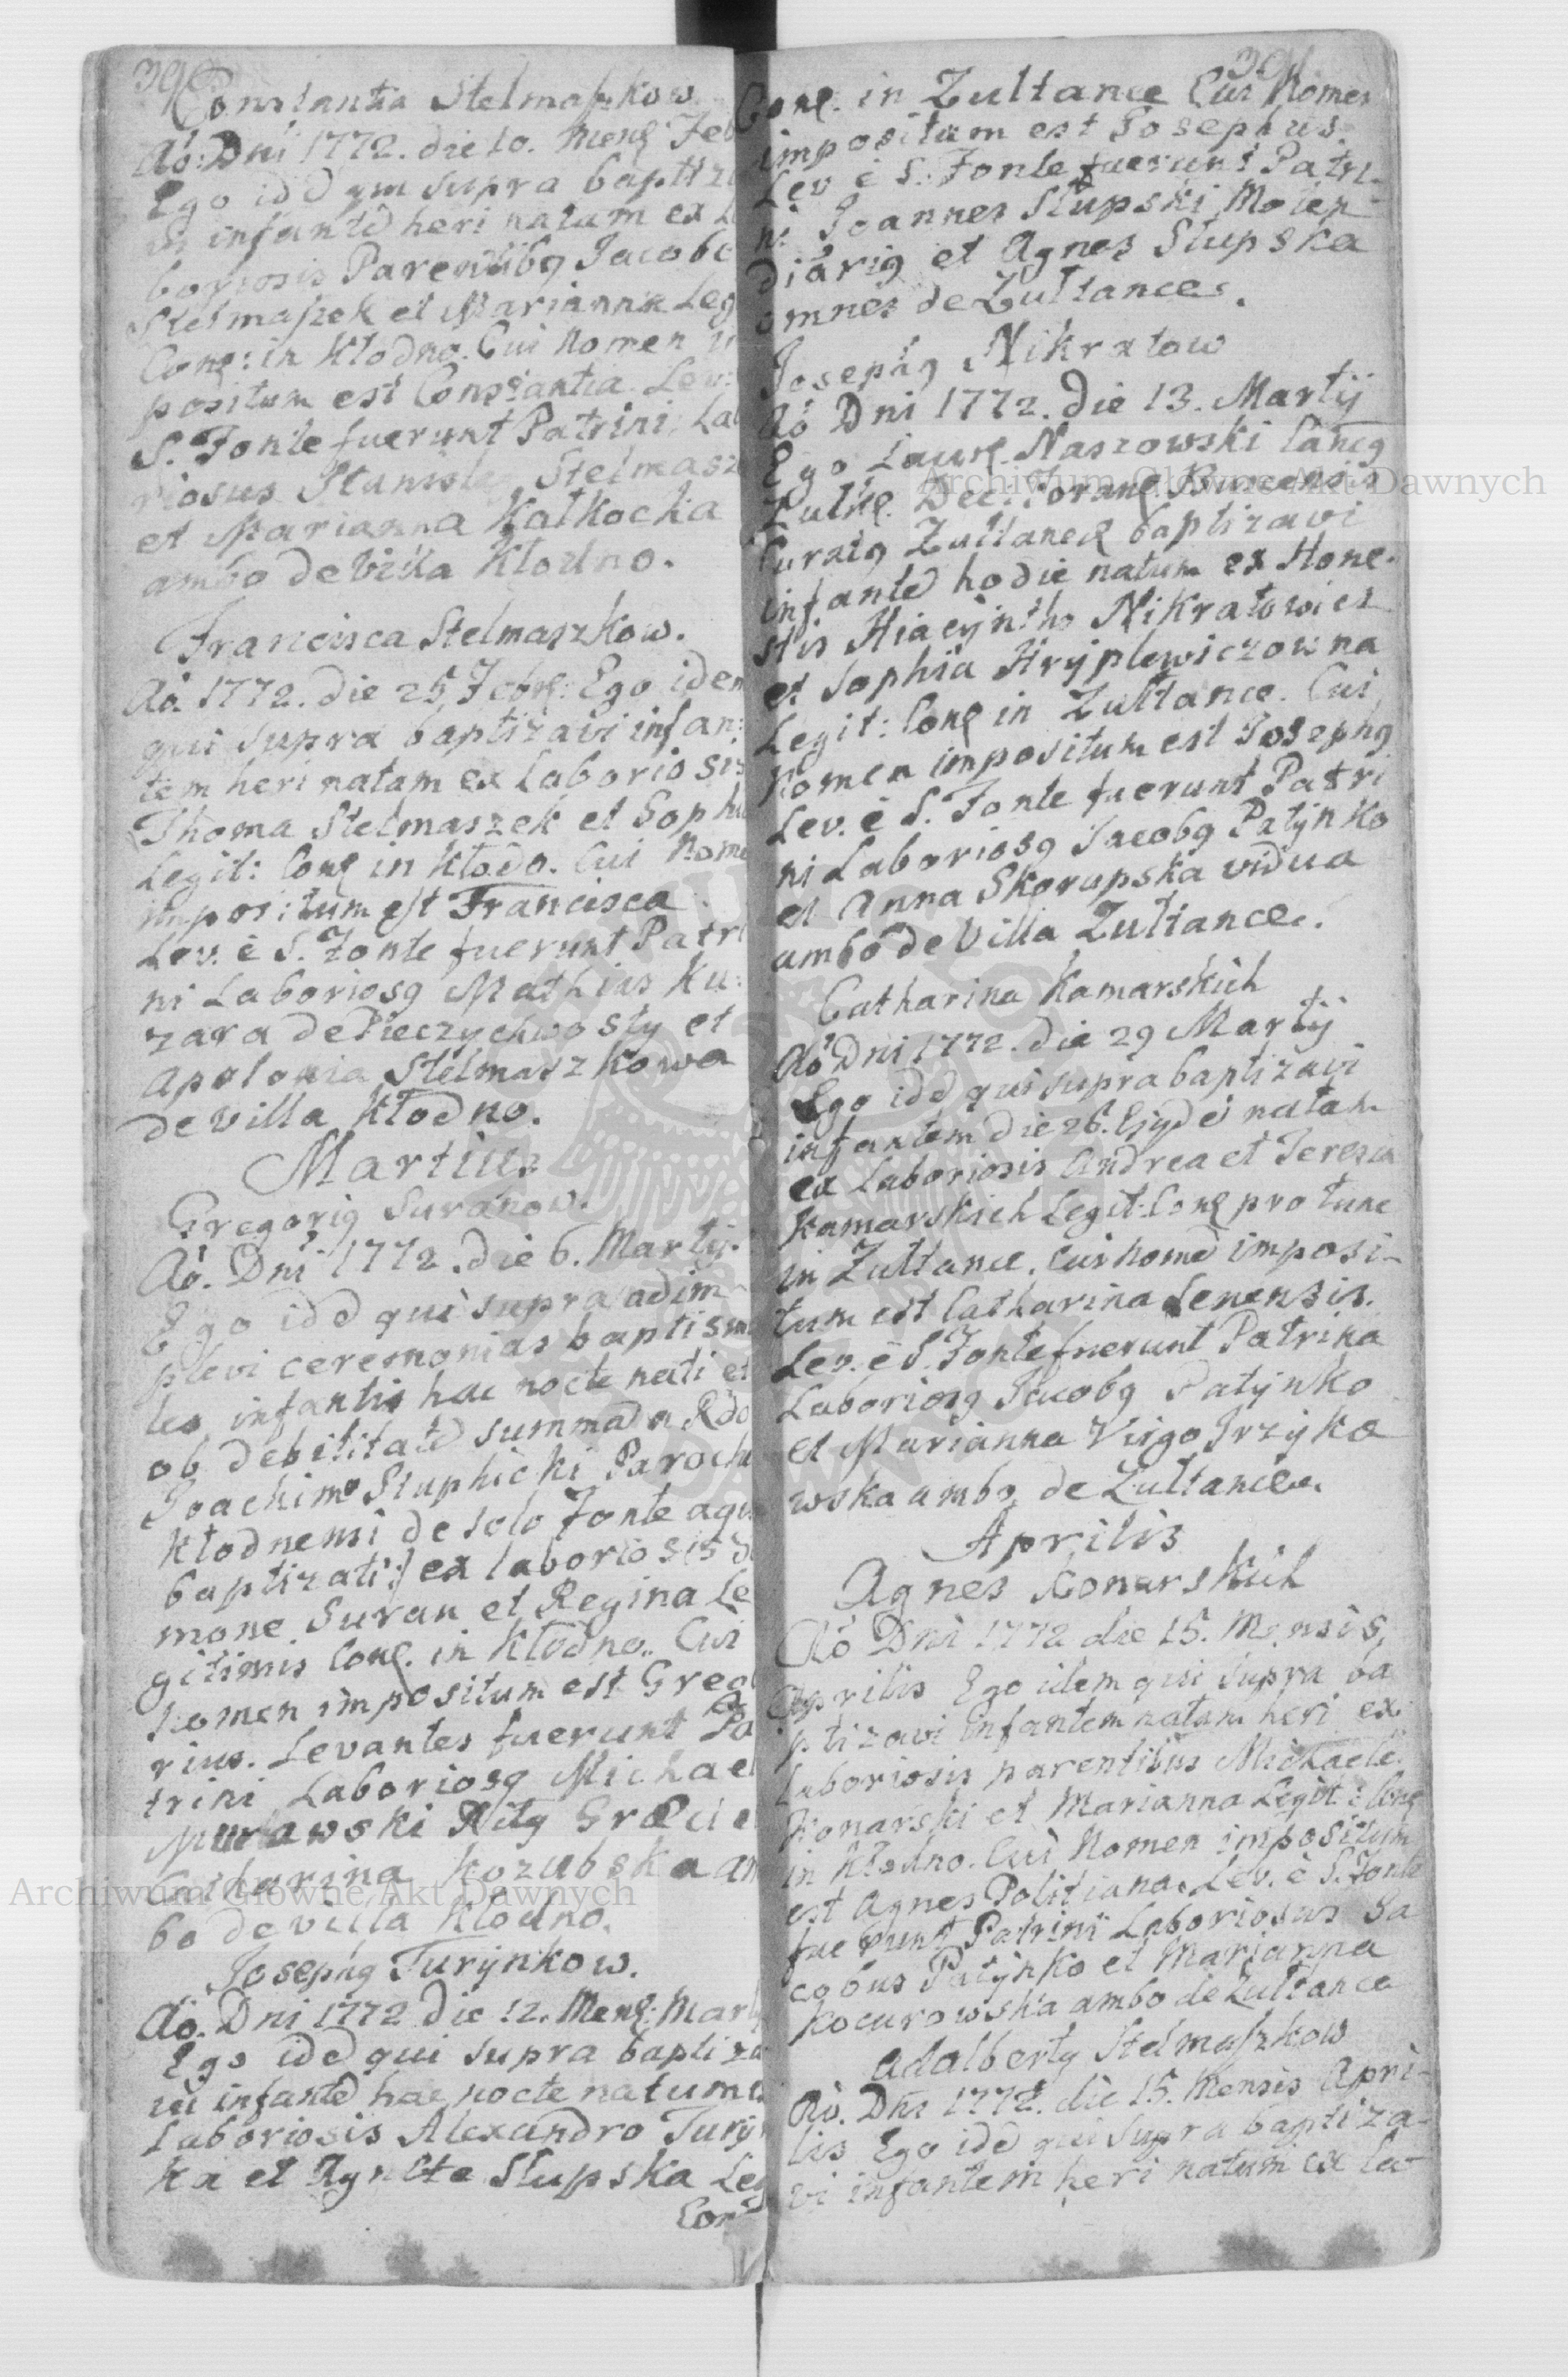 390
Constantia Stelmaszkow
Ao: Dni 1772. die 10. Mens Feb
Ego idd qui supra baptiza
vi infantd heri natam ex La
boriosis Parentibq Jacobo
Stelmaszek et Marianna Leg
Conc: in Kłodno. Cui Nomen im
positum est Constantia. Lev:
S. Fonte fuerunt Patrini Lab
riosus Stanislaq Stelmasz
et Marianna Kałkocka
ambo de Villa Kłodno.
Francisca Stelmaszkow.
Ao. 1772. die 25. Febr: Ego idem
qui supra baptizavi infan:
tem heri natam ex Laboriosis
Thoma Stelmaszek et Sophia
Legit: Conc in Kłodo. Cui Nome
impositum est Francisca.
Lev. è S. Fonte fuerunt Patri
ni Laboriosq Mathias Ku:
zara de Pieczychwosty et
Apolonia Stelmaszkowa
de Villa Kłodno.
Martius
Gregoriq Suranow.
Ao. Dni 1772. die 6. Martij.
Ego idd qui supra adim
plevi ceremonias baptism
les infantis hac nocte nati et
ob debilitatd summad a Rdo
Joachimo Słuphicki Parocho
Kłodnensi de solo Fonte aqu
baptizati: ex laboriosis Si
mone Suran et Regina Le
gitimis Conc. in Kłodno. Cui
Nomen impositum est Grego
rius. Levantes fuerunt Pa
trini Laboriosq Michael
Murawski Ritq Græci et
Catharina Kozubska am
bo de villa Kłodno.
Josephq Turynkow.
Ao. Dni 1772 die 12. Mens: Martij
Ego idd qui supra baptiza
vi infantd hac nocte natum ex
Laboriosis Alexandro Turyn
ka et Agnete Słupska Leg
Conc
391
Conc. in Zułtance Cui Nomen
impositum est Josephus.
Lev è S: Fonte fuerunt Patri
ni Joannes Słupski Molen
diariq et Agnes Słupska
omnes de Zułtance.
Josephq Nikrałow
Ao Dni 1772. die 13. Martij
Ego Laur. Naszowski Cancq
Zułk. Dec: Foran Buscensis
Curatq Zułtanc baptizavi
infantd hodie natum ex Hone
stis Hiacyntho Nikrałowicz
et Sophia Hryplewiczowna
Legit: Conc in Zułtance. Cui
Nomen impositum est Josephq
Lev. è S. Fonte fuerunt Patri
ni Laboriosq Jacobq Patynko
et Anna Skorupska vidua
ambo de Villa Zułtance.
Catharina Kamarskich
Ao Dni 1772. die 29 Martij
Ego idd qui supra baptizavi
infantem die 26. Ejusd natam
ex Laboriosis Andrea et Teresia
Kamarskich Legit: Conc pro tunc
in Zułtance. Cui nomd imposi-
tum est Catharina Senensis.
Lev. è S. Fonte fuerunt Patrina
Laboriosq Jacobq Patynko
et Marianna Virgo Jrzyko
wska ambo de Zułtance.
Aprilis
Agnes Konarskich
Ao Dni 1772 die 15. Mensis
Aprilis Ego idem qui supra ba
ptizavi infantem natam heri ex
Laboriosis parentibus Michaele
Konarski et Marianna Legit: Conc
in Kłodno. Cui Nomen impositum
est Agnes Politiana. Lev. è S. Fonte
fuerunt Patrini Laboriosus Ja
cobus Patynko et Marianna
Kocurowska ambo de Zułtance
Adalbertq Stelmaszkow
Ao. Dni 1772. die 15. Mensis Apri-
lis Ego idd qui supra baptiza-
vi infantem heri natum ex La-
Archiwum Główne Akt Dawnych
Archiwum Główne Akt Dawnych